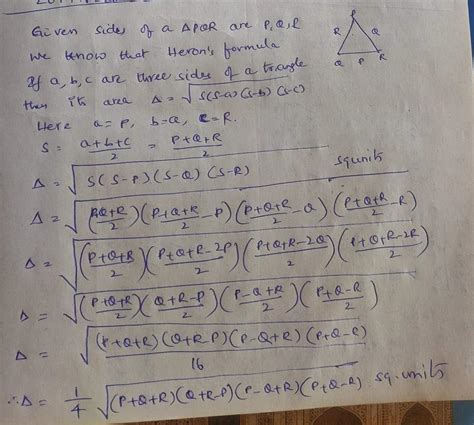 Given sides of a ΔPQR are P, Q, R
We know that Heron's formula
If a, b, c are three sides of a triangle
then its area Δ = √(S(S-a)(S-b)(S-c))
Here a = P, b = Q, c = R.
S = (a+b+c)/2 = (P+Q+R)/2
Δ = √(S(S-P)(S-Q)(S-R)) sq units
Δ = √(((P+Q+R)/2)((P+Q+R)/2 - P)((P+Q+R)/2 - Q)((P+Q+R)/2 - R))
Δ = √(((P+Q+R)/2)((P+Q+R-2P)/2)((P+Q+R-2Q)/2)((P+Q+R-2R)/2))
Δ = √(((P+Q+R)/2)((Q+R-P)/2)((P-Q+R)/2)((P+Q-R)/2))
Δ = √((P+Q+R)(Q+R-P)(P-Q+R)(P+Q-R)/16)
∴Δ = 1/4 √((P+Q+R)(Q+R-P)(P-Q+R)(P+Q-R)) sq.units
P
R Q
Q P R